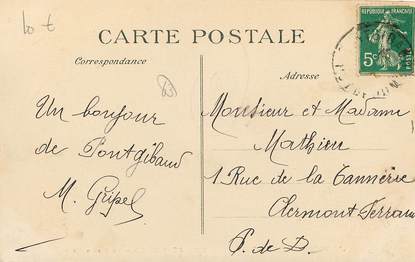 CARTE POSTALE
Correspondance
Adresse
RÉPUBLIQUE FRANÇAISE
5c
POSTES
Un bonjour
de Pontgibaud
M. Gripel
Monsieur et Madame
Mathieu
1 Rue de la Tannerie
Clermont Ferran
P. de D.